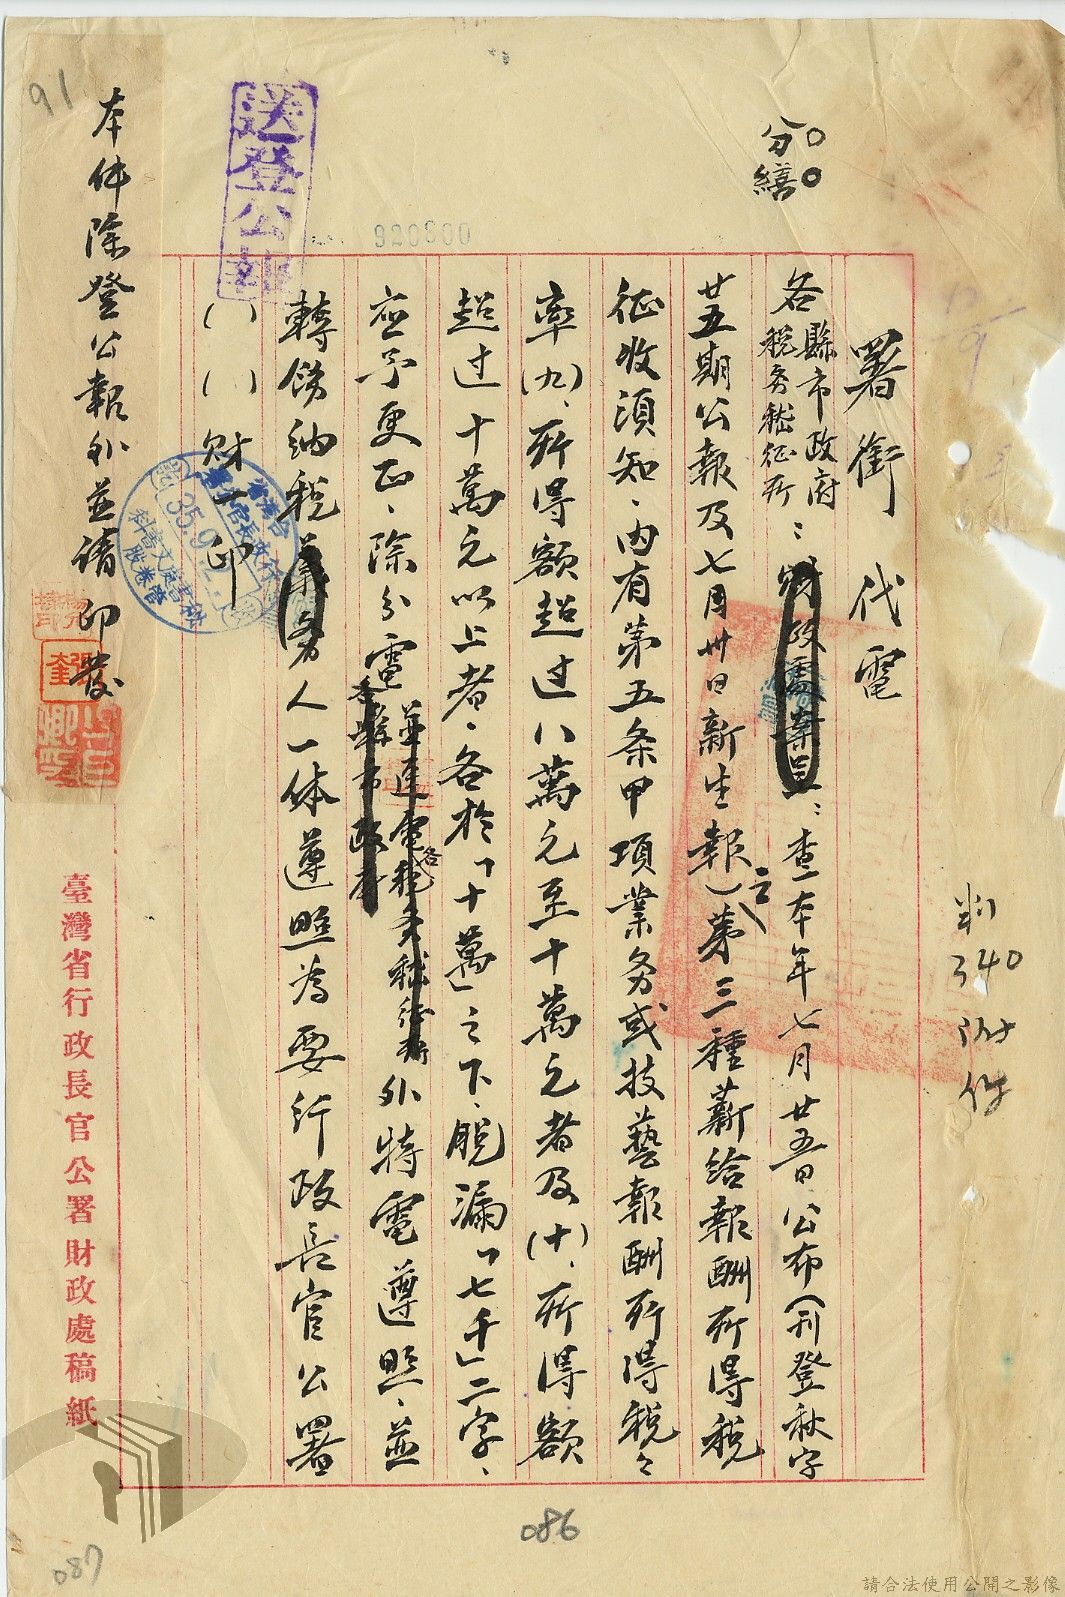 分繕
判340附件
署銜代電
各縣市政府
稅務稽征所
：查本年七月廿五日公布（刊登秋字
廿五期公報及七月卅日新生報）之第三種薪給報酬所得稅
征收須知、內有第五条甲項業务或技藝報酬所得稅之
率(九)、所得額超过八萬元至十萬元者及(十)、所得額
超过十萬元以上者、各於「十萬」之下、脫漏「七千」二字、
应予更正、除分電
並逕電各稅务稽征所
各縣市政府
外特電遵照、並
轉飭納稅義务人一体遵照為要行政長官公署
（ ）（ ）財一印
送登公報
920800
本件除登公報外並請印發
臺灣省行政長官公署財政處稿紙
35.9.
91
086
087
請合法使用公開之影像